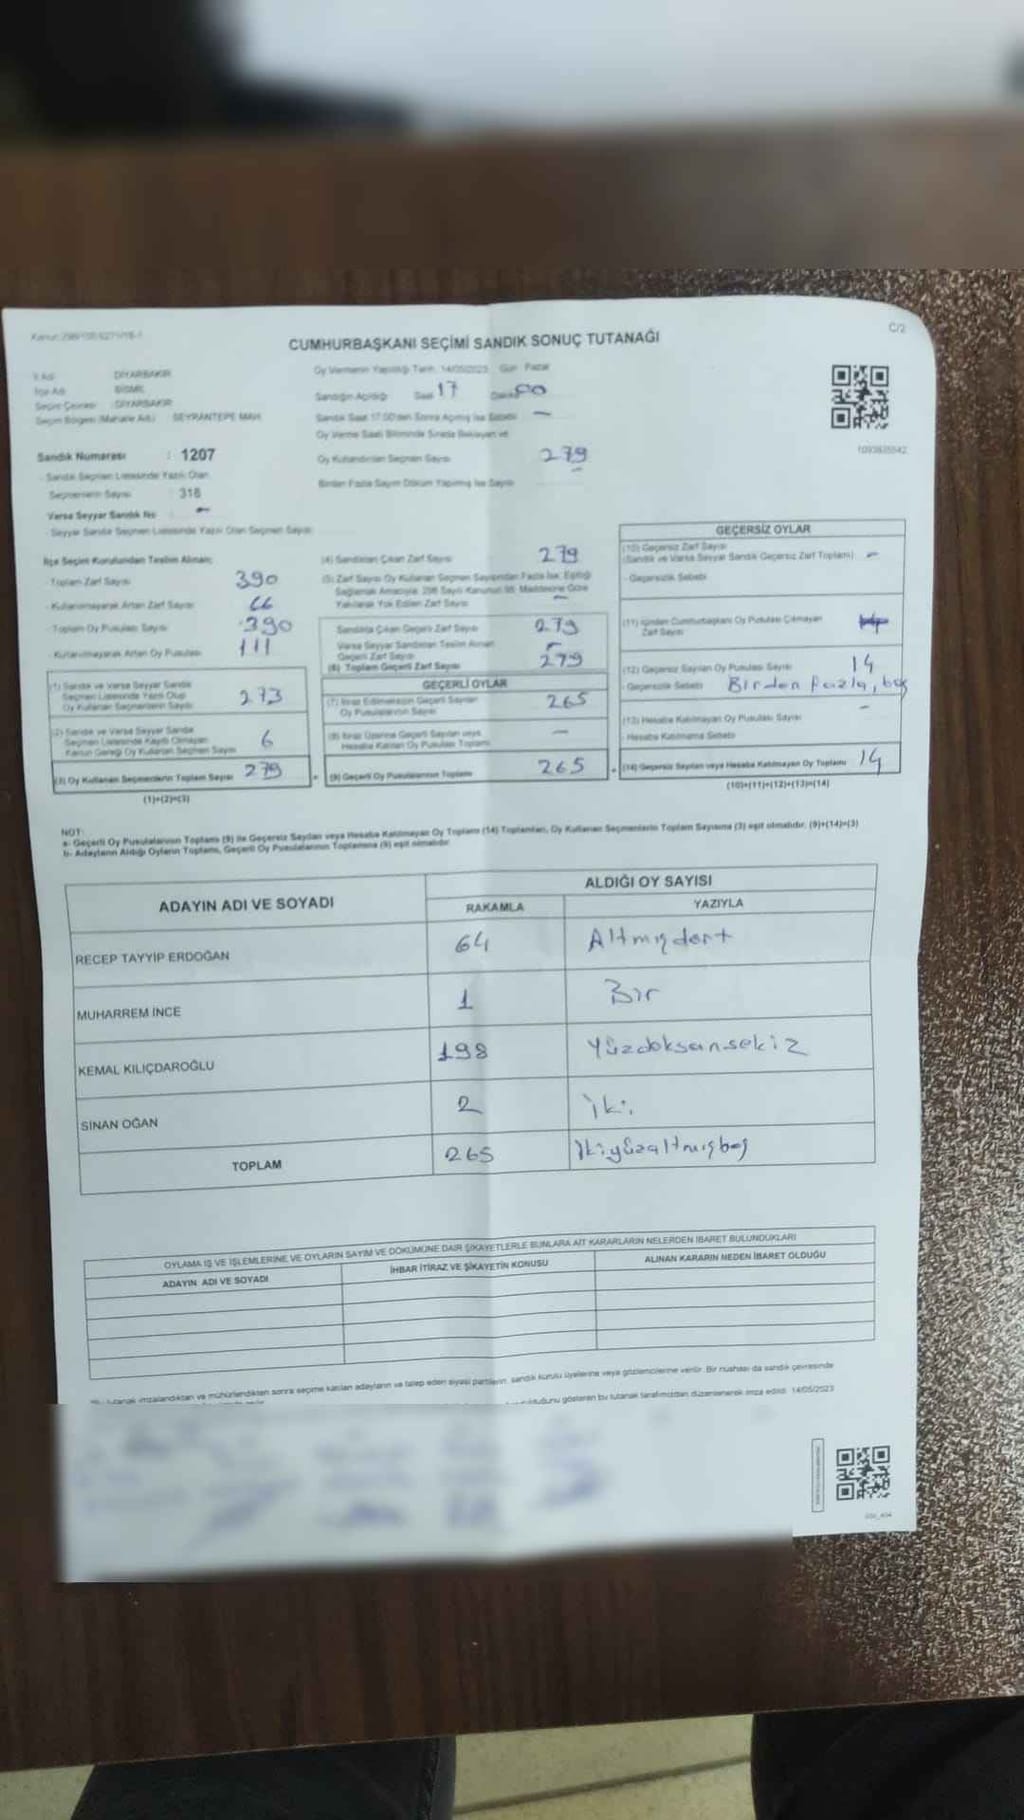 C/2
CUMHURBAŞKANI SEÇİMİ SANDIK SONUÇ TUTANAĞI
İl Adı DİYARBAKIR
İlçe Adı BİSMİL
Seçim Çevresi : DİYARBAKIR
Seçim Bölgesi (Mahalle Adı) : SEYRANTEPE MAH.
Sandık Numarası : 1207
Sandık Seçmen Listesinde Yazılı Olan
Seçmenlerin Sayısı : 318
Varsa Seyyar Sandık No : -
Seyyar Sandık Seçmen Listesinde Yazılı Olan Seçmen Sayısı:
Oy Vermenin Yapıldığı Tarih: 14/05/2023 Gün: Pazar
Sandığın Açıldığı Saat 17 Dakika 00
Sandık Saat 17.00'den Sonra Açılmış İse Sebebi -
Oy Verme Saati Bitiminde Sırada Bekleyen ve
Oy Kullandırılan Seçmen Sayısı 279
Birden Fazla Sayım Döküm Yapılmış İse Sayısı
1093835542
İlçe Seçim Kurulundan Teslim Alınan;
- Toplam Zarf Sayısı 390
- Kullanılmayarak Artan Zarf Sayısı 66
- Toplam Oy Pusulası Sayısı 390
- Kullanılmayarak Artan Oy Pusulası 111
(1) Sandık ve Varsa Seyyar Sandık
Seçmen Listesinde Yazılı Olup
Oy Kullanan Seçmenlerin Sayısı 273
(2) Sandık ve Varsa Seyyar Sandık
Seçmen Listesinde Kayıtlı Olmayan
Kanun Gereği Oy Kullanan Seçmen Sayısı 6
(3) Oy Kullanan Seçmenlerin Toplam Sayısı 279
(1)+(2)=(3)
(4) Sandıktan Çıkan Zarf Sayısı 279
(5) Zarf Sayısı Oy Kullanan Seçmen Sayısından Fazla İse, Eşitliği
Sağlamak Amacıyla 298 Sayılı Kanunun 98. Maddesine Göre
Yakılarak Yok Edilen Zarf Sayısı -
Sandıkta Çıkan Geçerli Zarf Sayısı 279
Varsa Seyyar Sandıktan Teslim Alınan
Geçerli Zarf Sayısı -
(6) Toplam Geçerli Zarf Sayısı 279
GEÇERLİ OYLAR
(7) İtiraz Edilmeksizin Geçerli Sayılan
Oy Pusulalarının Sayısı 265
(8) İtiraz Üzerine Geçerli Sayılan veya
Hesaba Katılan Oy Pusulası Toplamı -
(9) Geçerli Oy Pusulalarının Toplamı 265
GEÇERSİZ OYLAR
(10) Geçersiz Zarf Sayısı
(Sandık ve Varsa Seyyar Sandık Geçersiz Zarf Toplamı) -
- Geçersizlik Sebebi
(11) İçinden Cumhurbaşkanı Oy Pusulası Çıkmayan
Zarf Sayısı
(12) Geçersiz Sayılan Oy Pusulası Sayısı 14
- Geçersizlik Sebebi Birden fazla, boş
(13) Hesaba Katılmayan Oy Pusulası Sayısı -
- Hesaba Katılmama Sebebi
(14) Geçersiz Sayılan veya Hesaba Katılmayan Oy Toplamı 14
(10)+(11)+(12)+(13)=(14)
NOT:
a- Geçerli Oy Pusulalarının Toplamı (9) ile Geçersiz Sayılan veya Hesaba Katılmayan Oy Toplamı (14) Toplamları, Oy Kullanan Seçmenlerin Toplam Sayısına (3) eşit olmalıdır. (9)+(14)=(3)
b- Adayların Aldığı Oyların Toplamı, Geçerli Oy Pusulalarının Toplamına (9) eşit olmalıdır.
ADAYIN ADI VE SOYADI ALDIĞI OY SAYISI
RAKAMLA YAZIYLA
RECEP TAYYİP ERDOĞAN 64 Altmışdört
MUHARREM İNCE 1 Bir
KEMAL KILIÇDAROĞLU 198 Yüzdoksansekiz
SİNAN OĞAN 2 İki
TOPLAM 265 İkiyüzaltmışbeş
OYLAMA İŞ VE İŞLEMLERİNE VE OYLARIN SAYIM VE DÖKÜMÜNE DAİR ŞİKAYETLERLE BUNLARA AİT KARARLARIN NELERDEN İBARET BULUNDUKLARI
ADAYIN ADI VE SOYADI İHBAR İTİRAZ VE ŞİKAYETİN KONUSU ALINAN KARARIN NEDEN İBARET OLDUĞU
tutanak imzalandıktan ve mühürlendikten sonra seçime katılan adayların ve talep eden siyasi partilerin, sandık kurulu üyelerine veya gözlemcilerine verilir. Bir nüshası da sandık çevresinde
olduğunu gösteren bu tutanak tarafımızdan düzenlenerek imza edildi. 14/05/2023